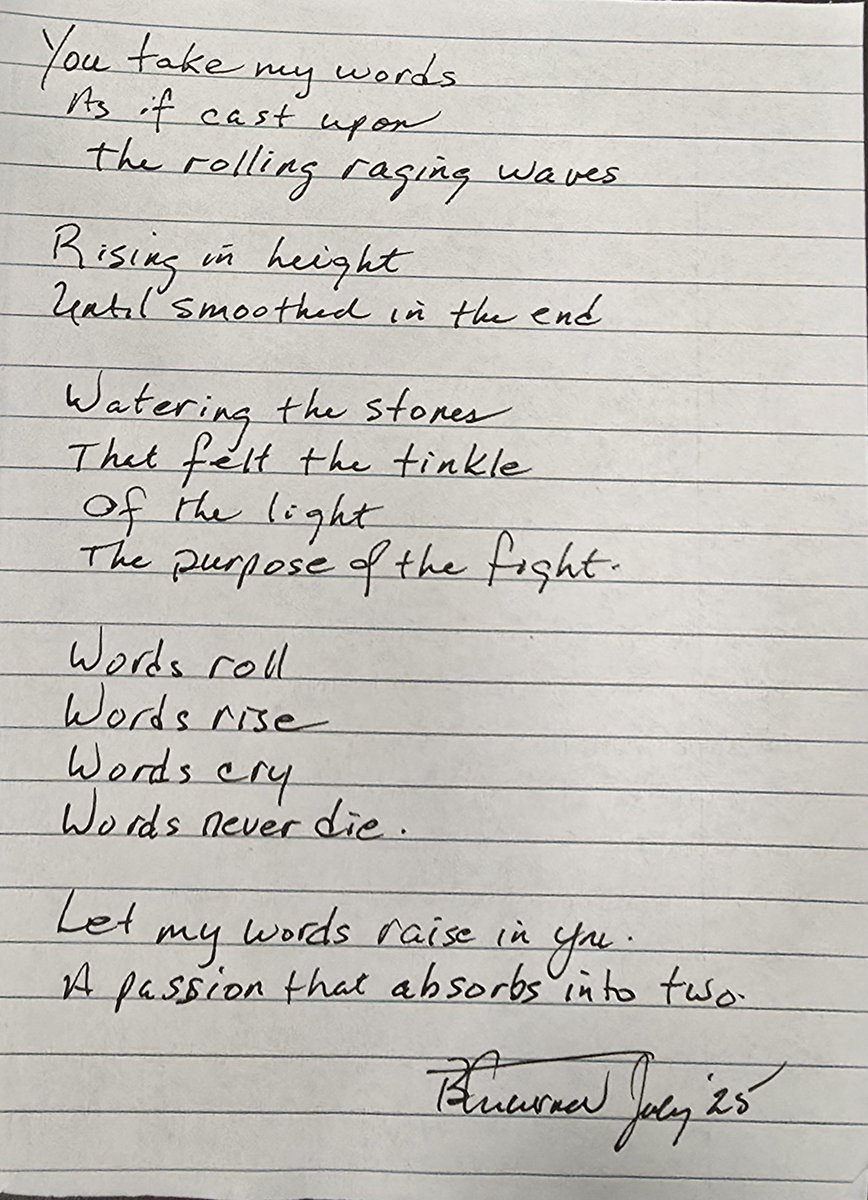 You take my words
As if cast upon
the rolling raging waves
Rising in height
Until smoothed in the end
Watering the stones
That felt the tinkle
Of the light
The purpose of the fight.
Words roll
Words rise
Words cry
Words never die.
Let my words raise in you.
A passion that absorbs into two.
July '25